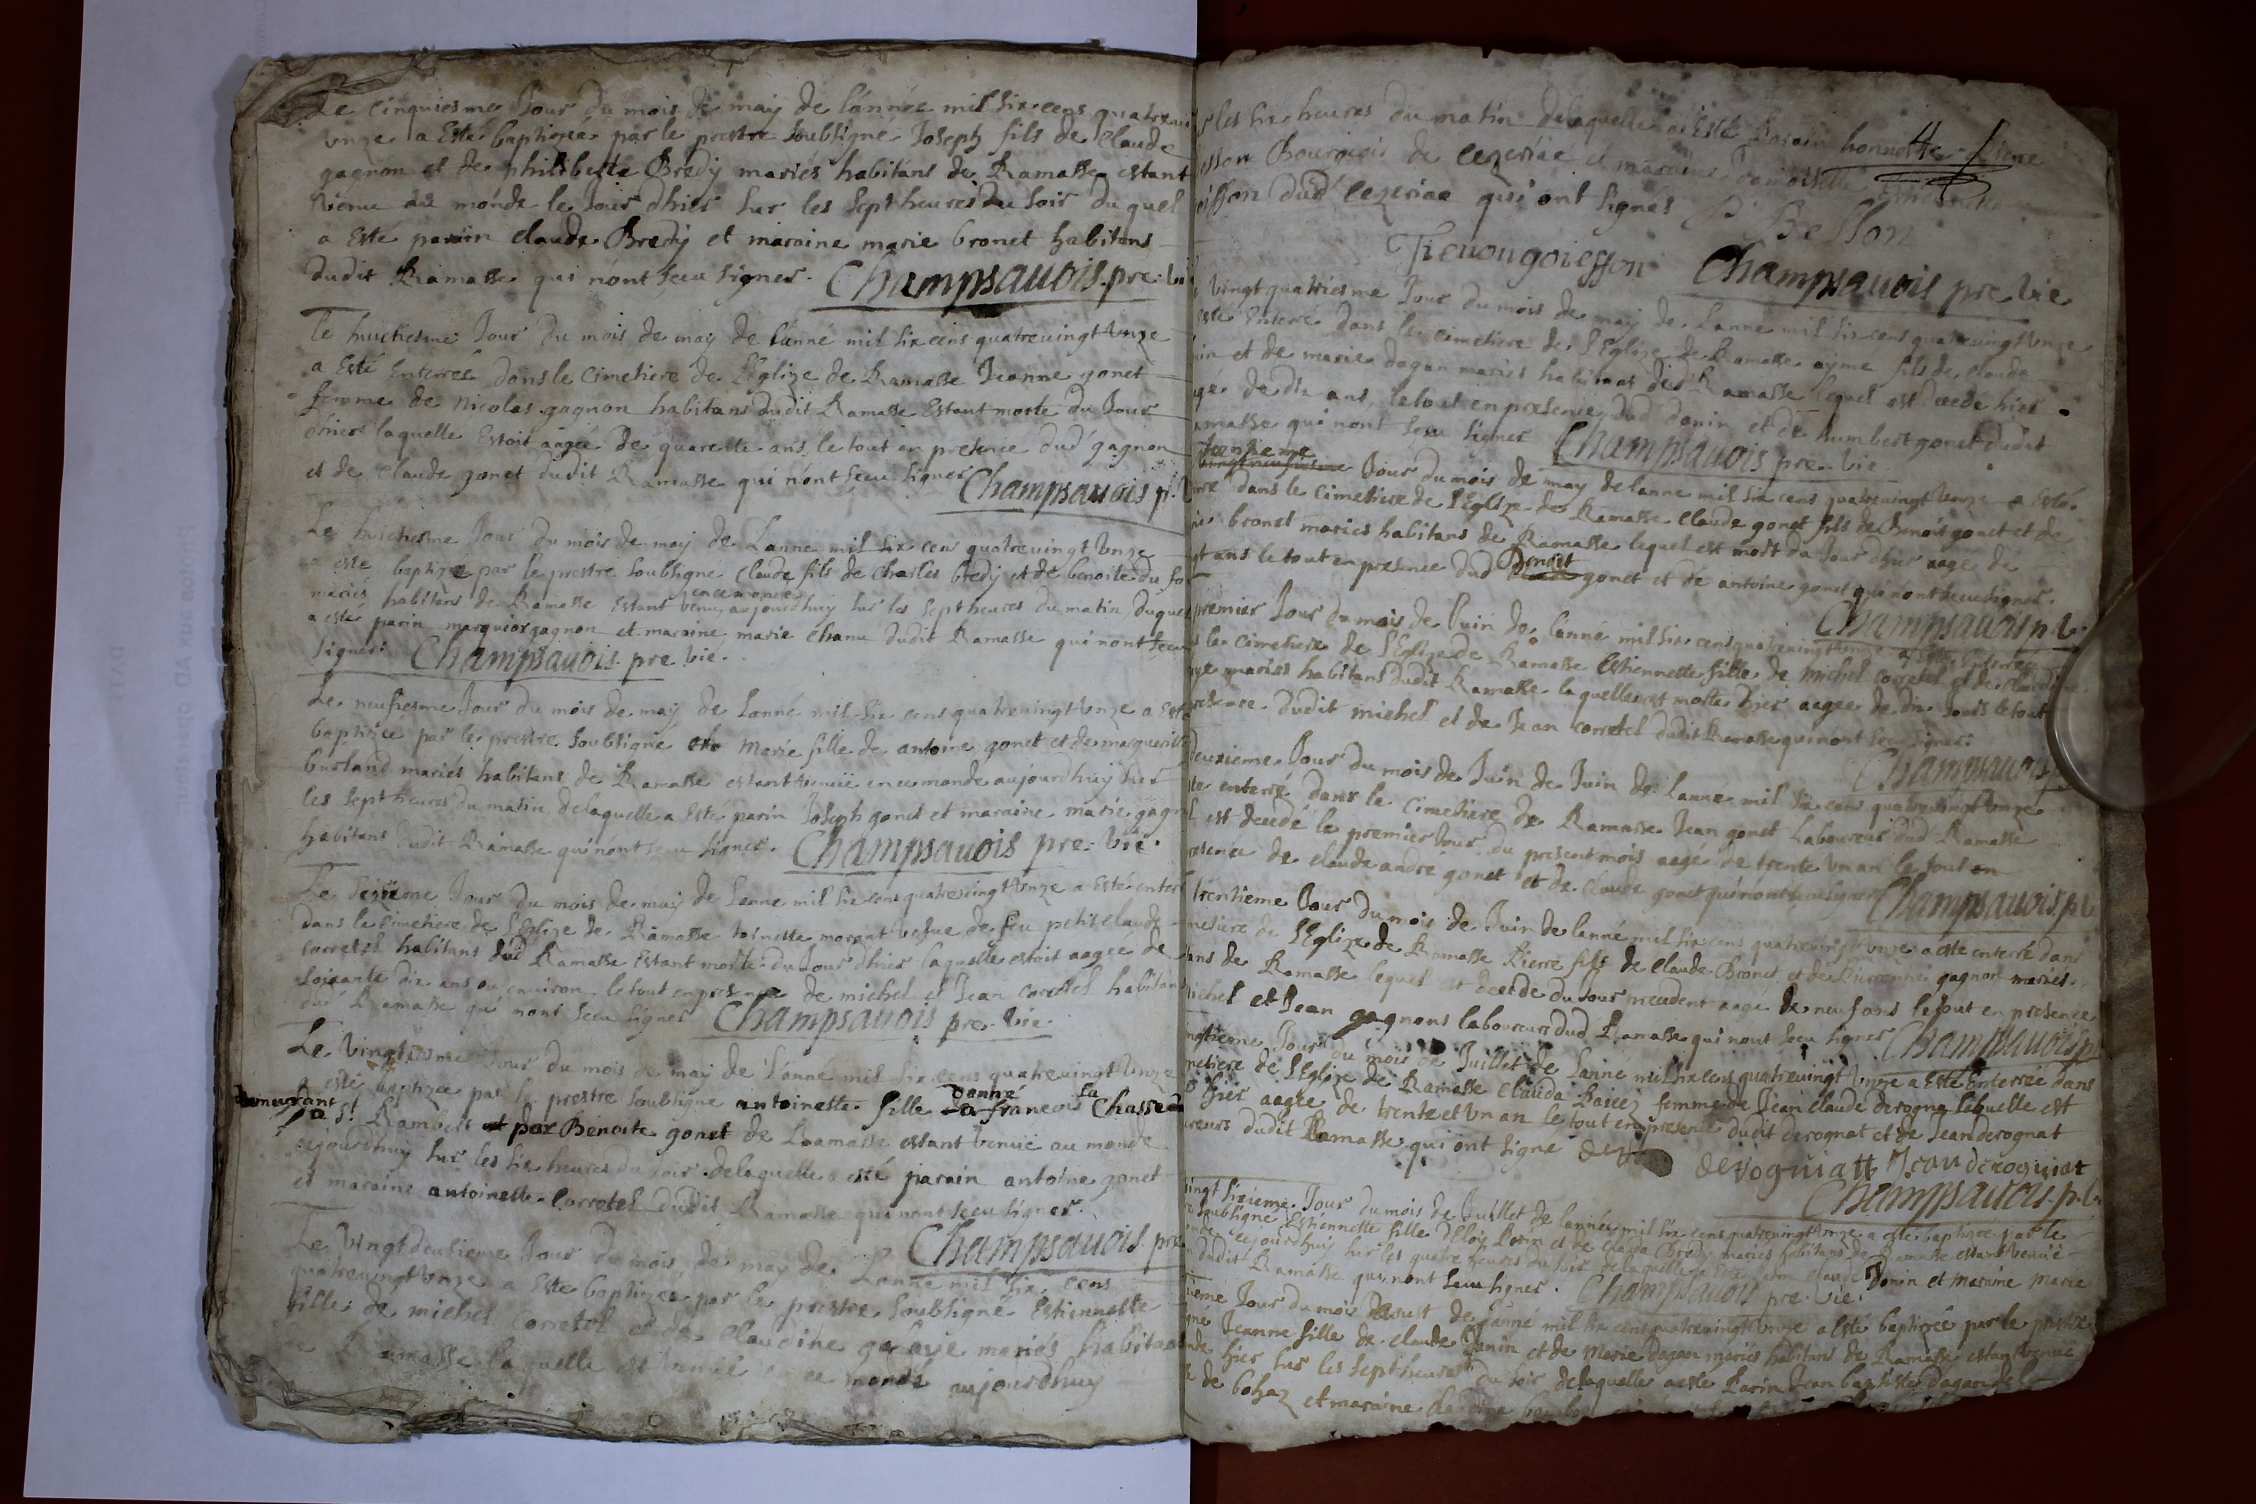 Le cinquiesme Jour du mois de may de l'année mil six cens quatreuin
Vnze a Esté baptizéé par le prestre soubsigné Joseph fils de Claude
gagnon et de philiberte Bredy mariés habitans de Ramasse estant
Venu au monde le Jour d'hier sur les sept heures du soir du quel
a Esté parain claude Bredy et maraine marie bronet habitans
dudit Ramasse qui n'ont sceu signer. Champsauois pre. vi
Le huictiesme Jour du mois de may de l'anné mil six cens quatreuingt Vnze
a Esté Enterréé dans le cimetiere de l'Eglize de Ramasse Jeanne gonet
femme de Nicolas gagnon habitans dudit Ramasse Estant morte du Jour
d'hier laquelle Estoit aagéé de quarente ans, le tout en presence dud gagnon
et de Claude gonet dudit Ramasse qui n'ont sceu signer Champsauois p.
Le huictiesme Jour du mois de may de Lanne mil six cens quatreuingt Vnze
a este baptizé par le prestre soubsigné Claude fils de Charles bredy et de benoite du fo
en ce monde
mariés habitans de Ramasse Estant Venu aujourdhuy sur les sept heures du matin duquel
a esté parin marguior gagnon et maraine marie Chanu dudit Ramasse qui n'ont sceu
signer. Champsauois pre vie.
Le neufiesme Jour du mois de may de Lanné mil six cens quatreuingt Vnze a esté
baptizéé par le prestre soubsigné Marie fille de antoine gonet et de marguerite
burland mariés habitans de Ramasse estant Venuë en ce monde aujourdhuy sur
les sept heures du matin delaquelle a Esté parin Joseph gonet et maraine marie gagn
habitans dudit Ramasse qui n'ont sceu signer. Champsauois pre. vie.
Le Jour du mois de may de lanne mil six cens quatreuingt Vnze a Esté enter
dans le Cimetiere de l'Eglize de Ramasse toinette morant vefue de feu petit claude
corretel habitans dud Ramasse Estant morte du Jour d'hier laquelle estoit aagee de
soixante dix ans ou enuiron le tout en presence de michel et Jean corretel habitans
dud Ramasse qui n'ont sceu signer Champsauois pre. vie.
Le Vingtiesme Jour du mois de may de l'anné mil six cens quatreuingt Vnze
a esté baptizee par le prestre soubsigné antoinette fille donné la francois la Chasse
demeurant
a St. Rambert et par Benoite gonet de Ramasse estant Venuë au monde
aujourdhuy sur les six heures du soir delaquelle a esté parain antoine gonet
et maraine antoinette Corretel dudit Ramasse qui n'ont sceu signer.
Champsauois pre
Le Vingt deuxieme Jour du mois de may de Lanne mil six cens
quatreuingt Vnze a Esté baptizee par le prestre soubsigné Estiennette
fille de michel Corretel et de Claudine mariés habitans
de Ramasse laquelle est Venuë en ce monde aujourdhuy
les six heures du matin delaquelle a Esté Parain honneste Pierre
esson Bourgeois de cezeriac et maraine damoiselle
sson dud cezeriac qui ont signés P Besson
Champsauois pre vie
Vingt quatriesme Jour du mois de may de Lanne mil six cens quatreuingt Vnze
esté Enterré dans le cimetiere de l'Eglize de Ramasse ayme fils de claude
et de marie dagan mariés habitans de Ramasse lequel est decede hier
agé de dix ans, le tout en presence dud donin et de humbert gonet dudit
amasse qui n'ont sceu signer Champsauois pre. vie
trentieme
vingt neufiesme Jour du mois de may de lanne mil six cens quatreuingt Vnze a Esté
erré dans le cimetiere de l'Eglize de Ramasse Claude gonet fils de Benoit gonet et de
bronet mariés habitans de Ramasse lequel est mort du Jour d'hier aage de
ans le tout en presence dud Benoit gonet et de antoine gonet qui n'ont sceu signer.
Champsauois p v.
premier Jour du mois de Juin de lanné mil six cens quatreuingt Vnze a Esté Enterree
le cimetiere de l'Eglize de Ramasse Estiennette fille de michel corretel et de claudine
mariés habitans dudit Ramasse laquelle est morte hier aagee de dix Jours le tout
presence dudit michel et de Jean corretel dudit Ramasse qui n'ont sceu signer.
Champsauois
deuxieme Jour du mois de Juin de Juin de lanne mil six cens quatreuingt Vnze
enterré dans le cimetiere de Ramasse Jean gonet Laboureur dud Ramasse
est decedé le premier Jour du present mois aagé de trente Vn an le tout en
presence de claude andré gonet et de Claude gonet qui n'ont sceu signer Champsauois p. v
trentieme Jour du mois de Juin de lanné mil six cens quatreuingt Vnze a este enterré dans
metiere de l'Eglize de Ramasse Pierre fils de Claude Bronet et de gagnon mariés
ans de Ramasse lequel est decede du Jour precedent aage de neuf ans le tout en presence
michel et Jean gagnons laboureurs dud Ramasse qui n'ont sceu signer Champsauois p
Jour du mois de Juillet de lanne mil six cens quatreuingt Vnze a Esté Enterrée dans
metiere de l'Eglize de Ramasse Clauda femme de Jean claude derognat lequelle est
hier aagee de trente et Vn an le tout en presence dudit derognat et de Jean derognat
reurs dudit Ramasse qui ont signé
derogniatt Jean derogniat
Champsauois. p. v
vingt sixieme Jour du mois de Juillet de lannée mil six cens quatreuingt Vnze a este baptizée par le
soubsigné Estiennette fille et de Bredy mariés habitans de Ramasse estant Venuë
monde ce jourdhuy sur les quatre heures du soir delaquelle a Esté claude Donin et maraine Marie
dudit Ramasse qui n'ont sceu signer. Champsauois pre. vie.
ieme Jour du mois de lanné mil six cens quatreuingt Vnze a esté baptizée par le prestre
gné Jeanne fille de claude Donin et de Marie dagan mariés habitans de Ramasse estant Venuë
hier sur les sept heures du soir delaquelle a este Parin Jean baptiste dagan
de bohaz et maraine